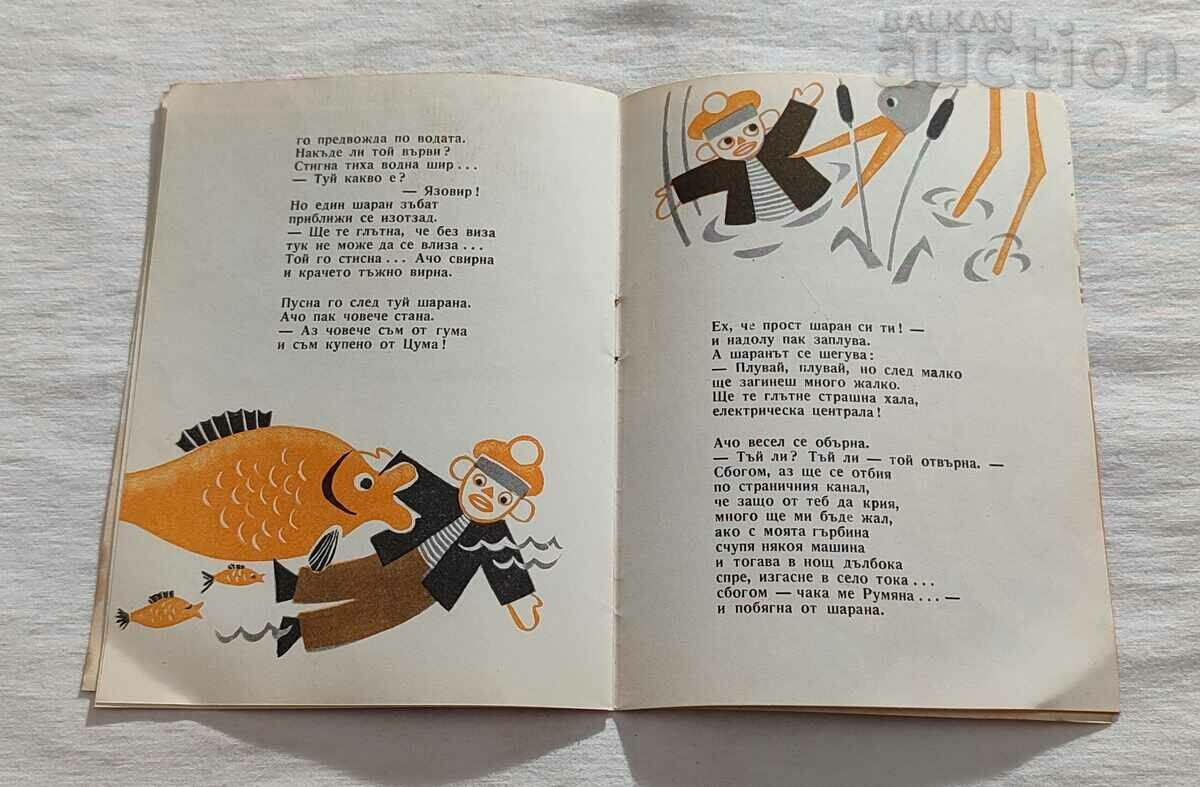 BALKAN
auction
го предвожда по водата.
Накъде ли той върви?
Стигна тиха водна шир...
— Туй какво е?
— Язовир!
Но един шаран зъбат
приближи се изотзад.
— Ще те глътна, че без виза
тук не може да се влиза...
Той го стисна... Ачо свирна
и крачето тъжно вирна.
Пусна го след туй шарана.
Ачо пак човече стана.
— Аз човече съм от гума
и съм купено от Цума!
Ех, че прост шаран си ти! —
и надолу пак заплува.
А шаранът се шегува:
— Плувай, плувай, но след малко
ще загинеш много жалко.
Ще те глътне страшна хала,
електрическа централа!
Ачо весел се обърна.
— Тъй ли? Тъй ли — той отвърна. —
Сбогом, аз ще се отбия
по страничния канал,
че защо от теб да крия,
много ще ми бъде жал,
ако с моята гърбина
счупя някоя машина
и тогава в нощ дълбока
спре, изгасне в село тока...
сбогом — чака ме Румяна... —
и побягна от шарана.